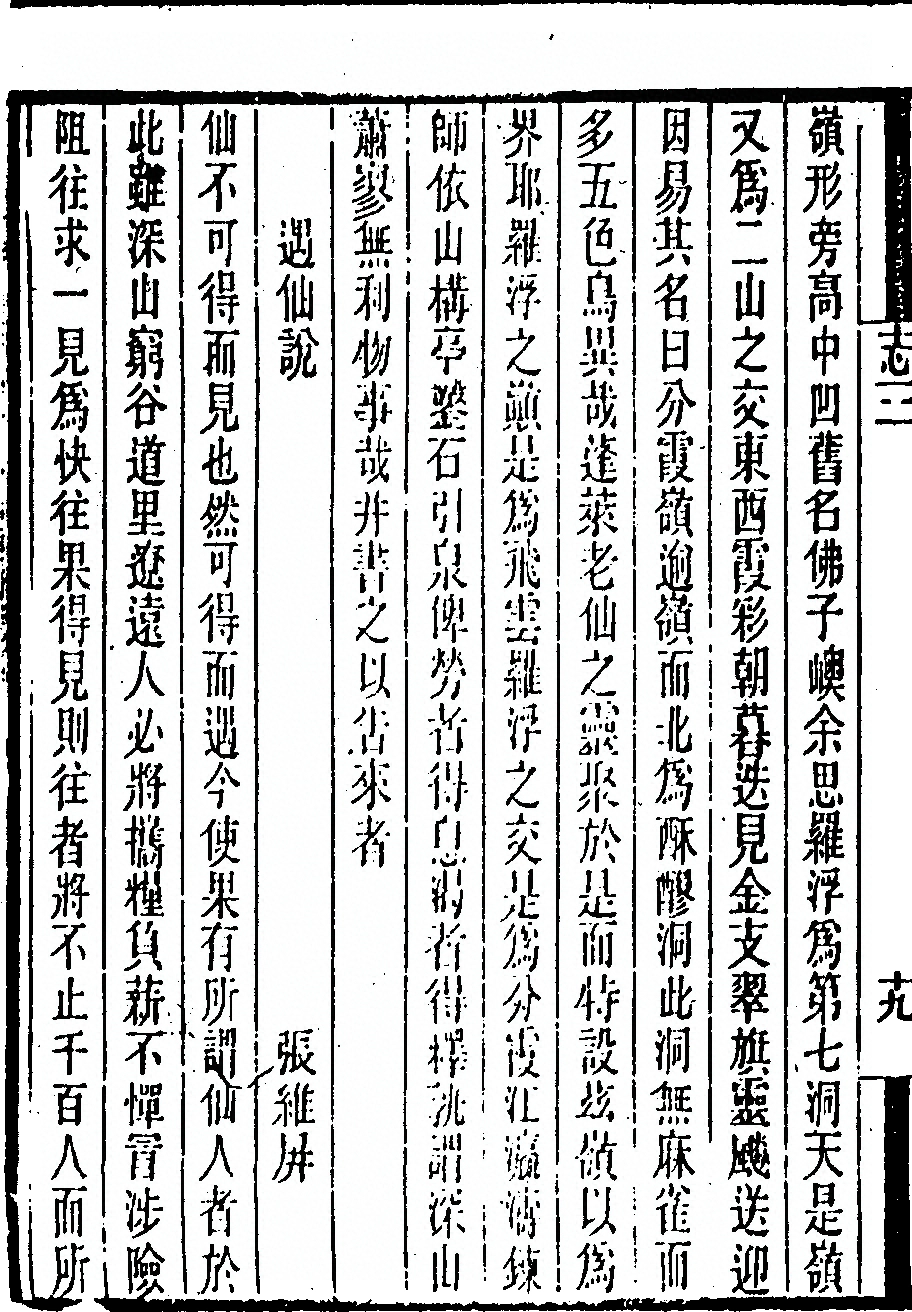 志二
十九
嶺形旁高中凹舊名佛子㠗余思羅浮爲第七洞天是嶺
又爲二山之交東西霞彩朝暮迭見金支翠旗靈颷送迎
因易其名曰分霞嶺逾嶺而北爲酥醪洞此洞無麻雀而
多五色鳥異哉蓬萊老仙之靈聚於是而特設兹嶺以爲
界耶羅浮之巔是爲飛雲羅浮之交是爲分霞江瀛濤鍊
師依山構亭鑿石引泉俾勞者得息渴者得擇孰謂深山
蕭寥無利物事哉并書之以告來者
遇仙說 張維屏
仙不可得而見也然可得而遇今使果有所謂仙人者於
此雖深山窮谷道里遼遠人必將攜糧負薪不憚冒涉險
阻往求一見爲快往果得見則往者將不止千百人而所